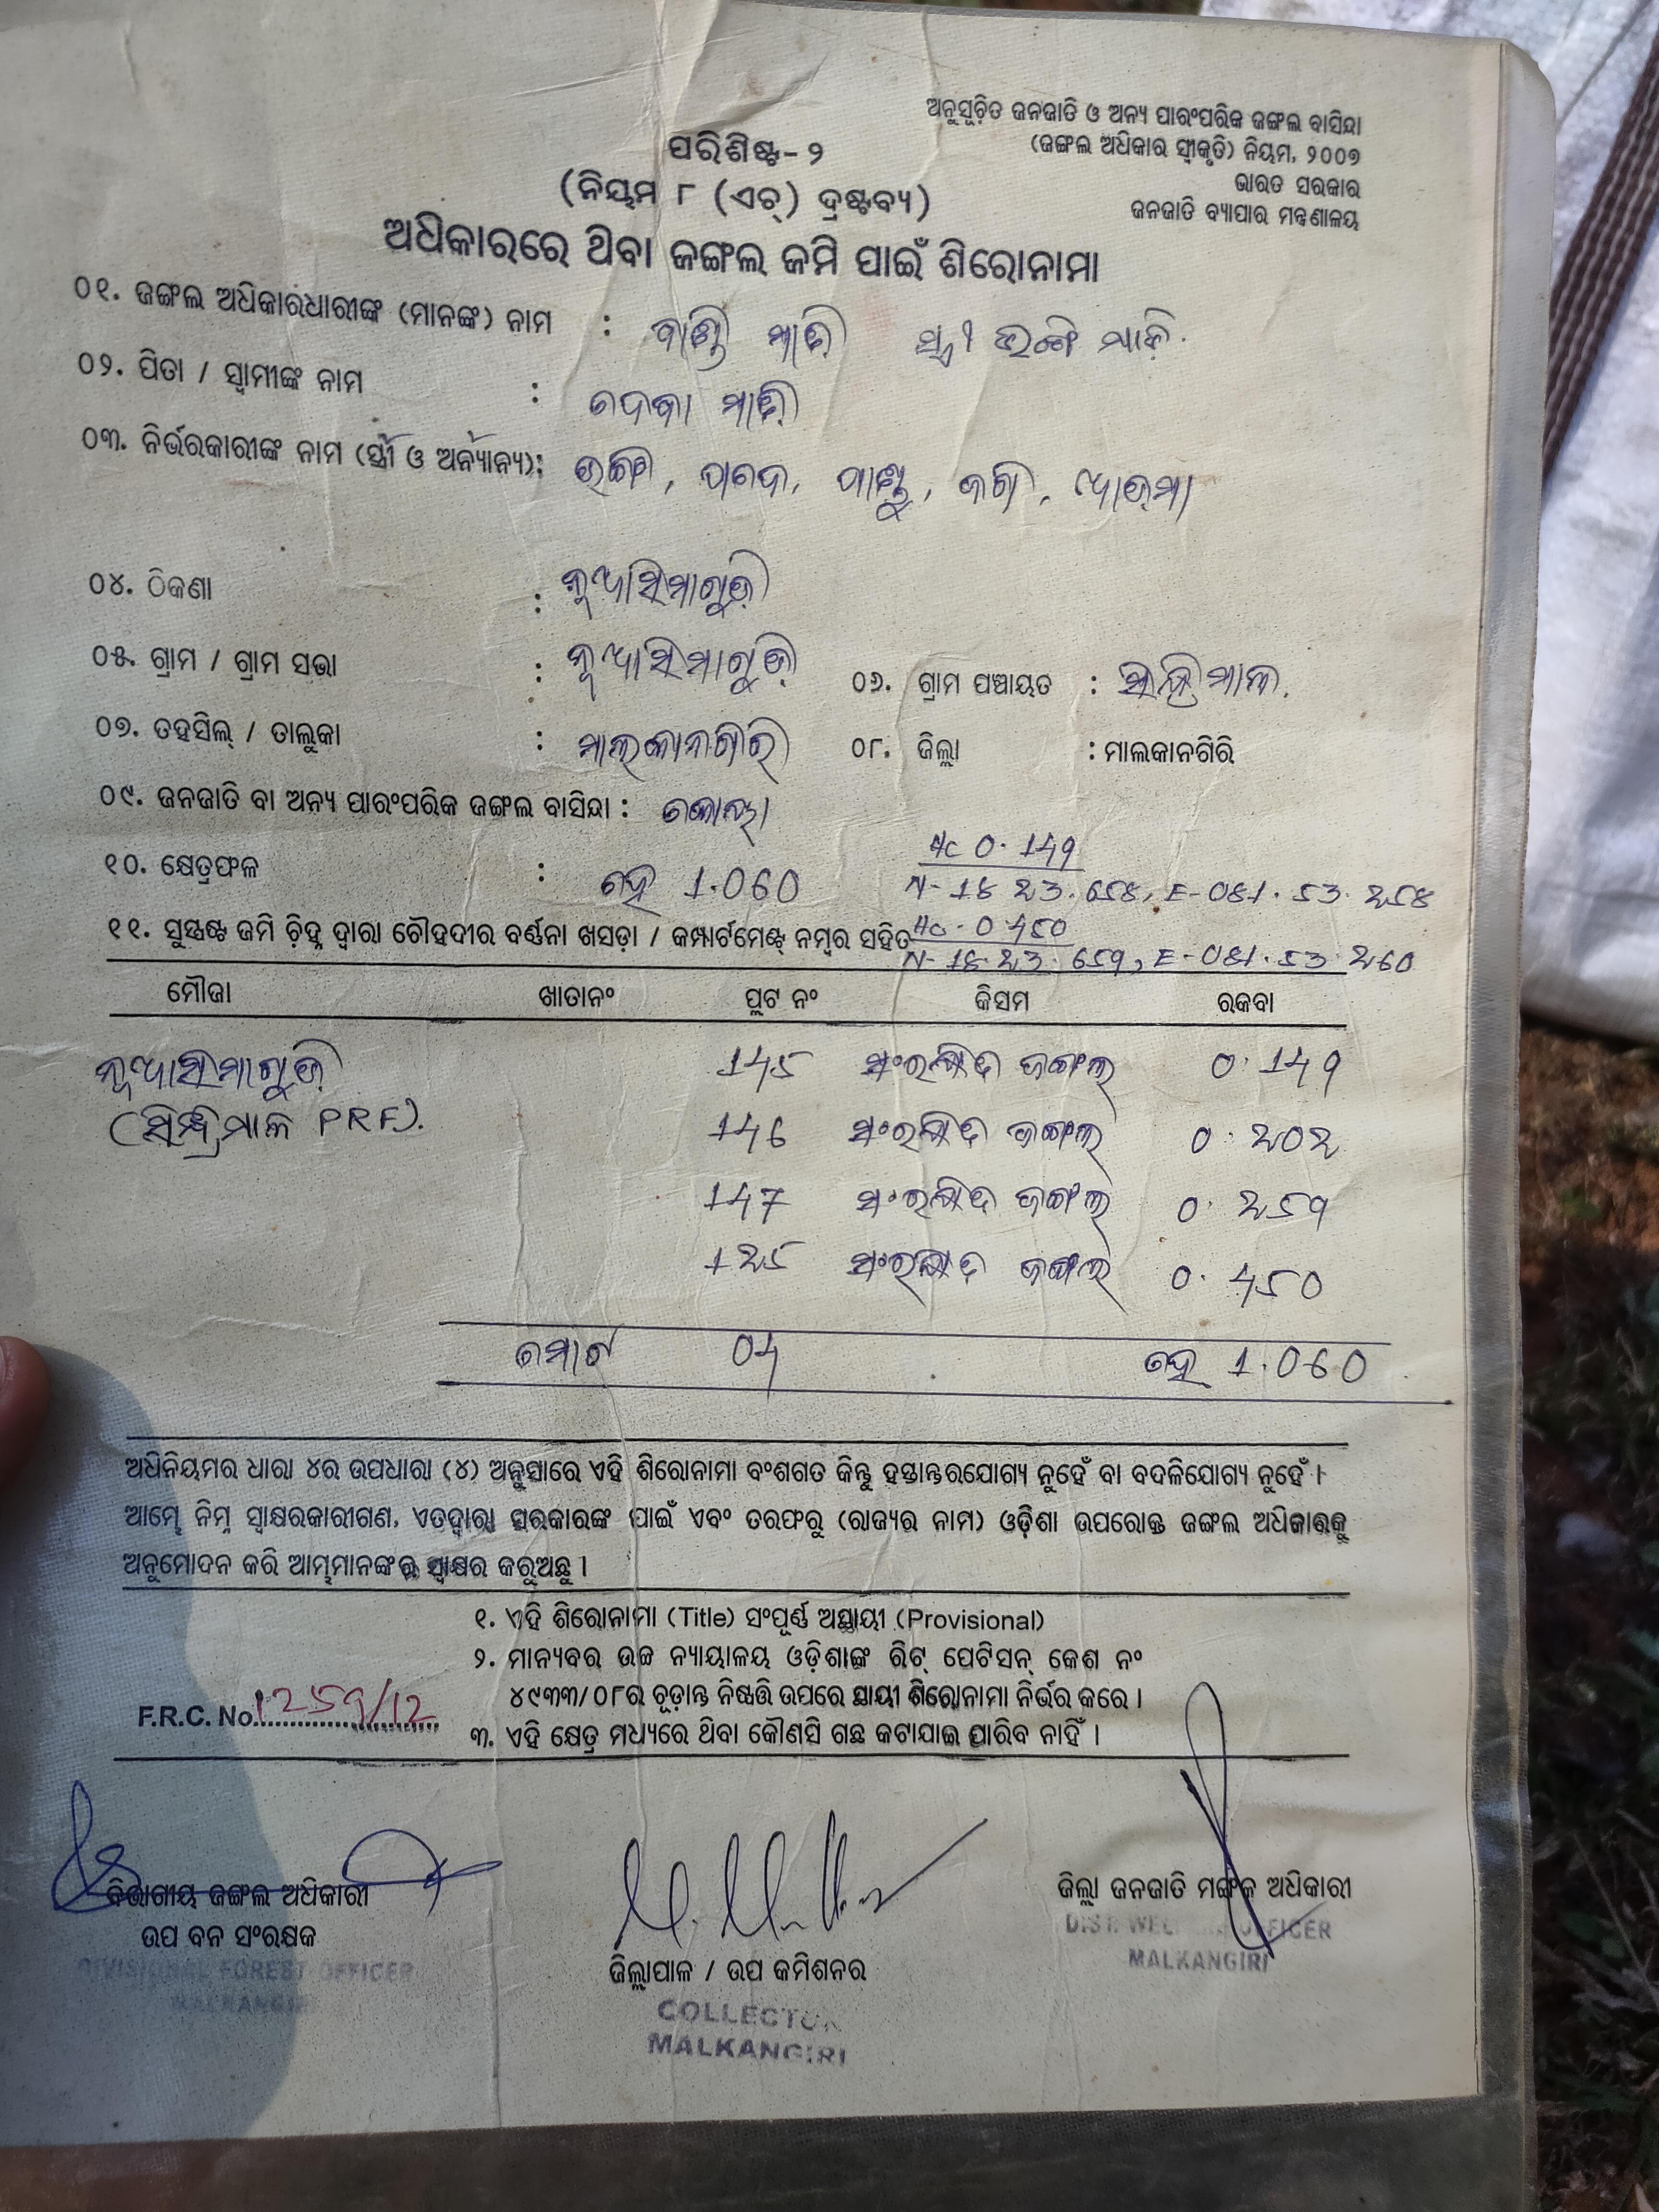 ଅନୁସୂଚିତ ଜନଜାତି ଓ ଅନ୍ୟ ପାରଂପରିକ ଜଙ୍ଗଲ ବାସିନ୍ଦା
(ଜଙ୍ଗଲ ଅଧିକାର ସ୍ୱୀକୃତି) ନିୟମ, ୨୦୦୭
ଭାରତ ସରକାର
ଜନଜାତି ବ୍ୟାପାର ମନ୍ତ୍ରଣାଳୟ
ପରିଶିଷ୍ଟ-୨
(ନିୟମ ୮ (ଏଚ୍) ଦ୍ରଷ୍ଟବ୍ୟ)
ଅଧିକାରରେ ଥିବା ଜଙ୍ଗଲ ଜମି ପାଇଁ ଶିରୋନାମା
୦୧. ଜଙ୍ଗଲ ଅଧିକାରଧାରୀଙ୍କ (ମାନଙ୍କ) ନାମ :
୦୨. ପିତା / ସ୍ୱାମୀଙ୍କ ନାମ : ଦେବା ମାଡ଼ି
୦୩. ନିର୍ଭରକାରୀଙ୍କ ନାମ (ସ୍ତ୍ରୀ ଓ ଅନ୍ୟାନ୍ୟ):
୦୪. ଠିକଣା : ନୂଆସିମାଗୁଡ଼ି
୦୫. ଗ୍ରାମ / ଗ୍ରାମ ସଭା : ନୂଆସିମାଗୁଡ଼ି ୦୬. ଗ୍ରାମ ପଞ୍ଚାୟତ :
୦୭. ତହସିଲ୍ / ତାଲୁକା : ମାଲକାନଗିରି ୦୮. ଜିଲ୍ଲା : ମାଲକାନଗିରି
୦୯. ଜନଜାତି ବା ଅନ୍ୟ ପାରଂପରିକ ଜଙ୍ଗଲ ବାସିନ୍ଦା : କୋୟା
Hc 0.149
୧୦. କ୍ଷେତ୍ରଫଳ : ହେ 1.060
Hc - 0.450
୧୧. ସୁସ୍ପଷ୍ଟ ଜମି ଚିହ୍ନ ଦ୍ୱାରା ଚୌହଦୀର ବର୍ଣ୍ଣନା ଖସଡ଼ା / କମ୍ପାର୍ଟମେଣ୍ଟ୍ ନମ୍ବର ସହିତ
ମୌଜା ଖାତାନଂ ପ୍ଲଟ ନଂ କିସମ ରକବା
ନୂଆସିମାଗୁଡ଼ି 145 ସଂରକ୍ଷିତ ଜଙ୍ଗଲ 0.149
(ସିନ୍ଧ୍ରିମାଳ PRF). 146 ସଂରକ୍ଷିତ ଜଙ୍ଗଲ 0.202
147 ସଂରକ୍ଷିତ ଜଙ୍ଗଲ 0.259
125 ସଂରକ୍ଷିତ ଜଙ୍ଗଲ 0.450
ମୋଟ 04 ହେ 1.060
ଅଧିନିୟମର ଧାରା ୪ର ଉପଧାରା (୪) ଅନୁସାରେ ଏହି ଶିରୋନାମା ବଂଶଗତ କିନ୍ତୁ ହସ୍ତାନ୍ତରଯୋଗ୍ୟ ନୁହେଁ ବା ବଦଳିଯୋଗ୍ୟ ନୁହେଁ ।
ଆମ୍ଭେ ନିମ୍ନ ସ୍ୱାକ୍ଷରକାରୀଗଣ, ଏତଦ୍ୱାରା ସରକାରଙ୍କ ପାଇଁ ଏବଂ ତରଫରୁ (ରାଜ୍ୟର ନାମ) ଓଡ଼ିଶା ଉପରୋକ୍ତ ଜଙ୍ଗଲ ଅଧିକାରକୁ
ଅନୁମୋଦନ କରି ଆମ୍ଭମାନଙ୍କର ସ୍ୱାକ୍ଷର କରୁଅଛୁ ।
୧. ଏହି ଶିରୋନାମା (Title) ସଂପୂର୍ଣ୍ଣ ଅସ୍ଥାୟୀ (Provisional)
୨. ମାନ୍ୟବର ଉଚ୍ଚ ନ୍ୟାୟାଳୟ ଓଡ଼ିଶାଙ୍କ ରିଟ୍ ପେଟିସନ୍ କେଶ ନଂ
୪୯୩୩/୦୮ର ଚୂଡ଼ାନ୍ତ ନିଷ୍ପତ୍ତି ଉପରେ ସ୍ଥାୟୀ ଶିରୋନାମା ନିର୍ଭର କରେ ।
F.R.C. No. 1259/12
୩. ଏହି କ୍ଷେତ୍ର ମଧ୍ୟରେ ଥିବା କୌଣସି ଗଛ କଟାଯାଇ ପାରିବ ନାହିଁ ।
ବିଭାଗୀୟ ଜଙ୍ଗଲ ଅଧିକାରୀ
ଉପ ବନ ସଂରକ୍ଷକ
DIVISIONAL FOREST OFFICER
MALKANGIRI
ଜିଲ୍ଲାପାଳ / ଉପ କମିଶନର
COLLECTOR
MALKANGIRI
ଜିଲ୍ଲା ଜନଜାତି ମଙ୍ଗଳ ଅଧିକାରୀ
DIST. WELFARE OFFICER
MALKANGIRI